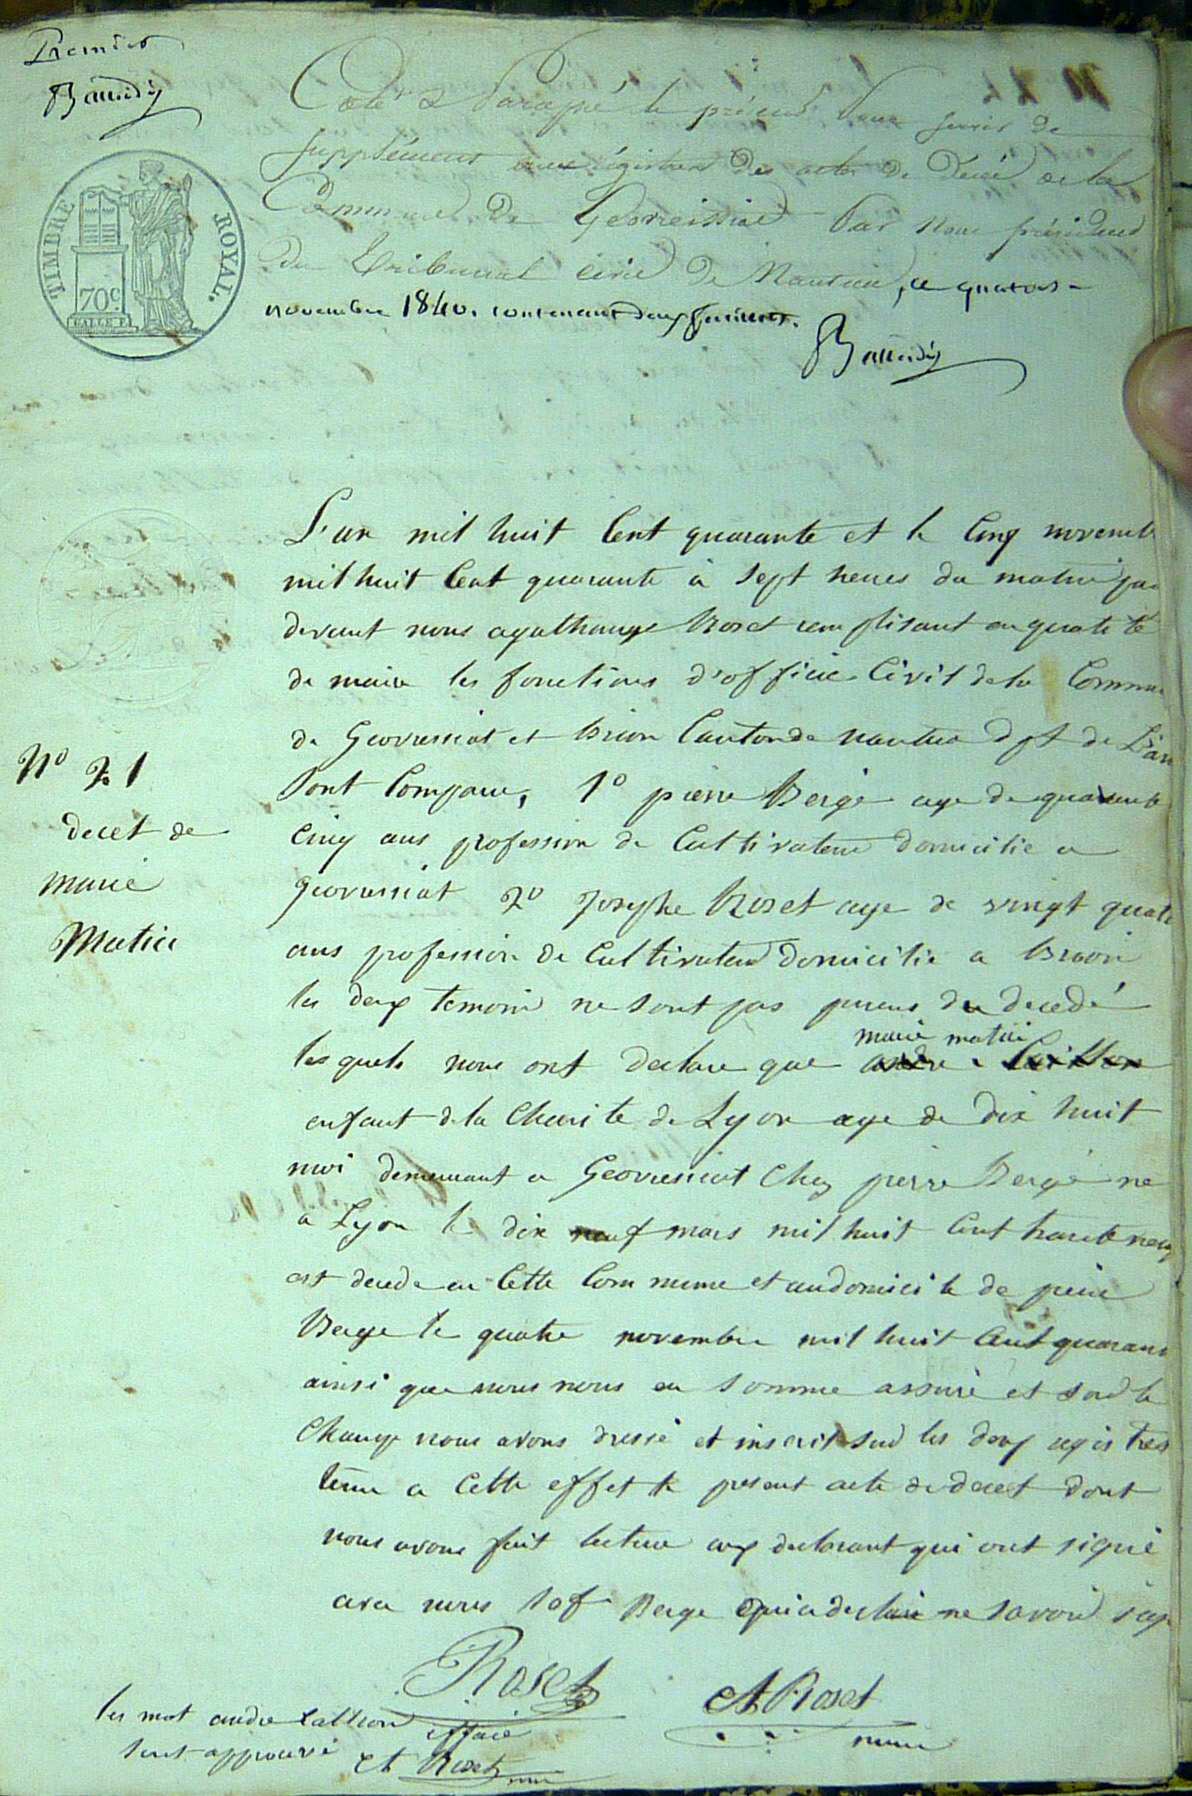 Premier
Baudy
Coté & Paraphé le présent pour servir de
supplément aux régistres des actes de Décès de la
Commune de Geovreissiat Par nous président
du Tribunal civil de Nantua, ce quatorze
novembre 1840. contenant deux feuillets.
TIMBRE ROYAL.
70c
L'an mil huit Cent quarante et le Cinq novemb
mil huit Cent quarante à sept heures du matin par
devant nous agathange Roset remplisant en qualité
de maire les fonctions d'officie Civil de la Commu
de Geovressiat et Brion Canton de nantua dpt de L'ain
Sont Comparu, 1º pierre Bergé age de quarante
Cinq ans profession de Cultivateur domicilie a
geovressiat 2º Josephe Roset age de vingt quatr
ans profession de Cultivateur domicilie a Brion
les deux temoin ne sont pas parens du decedé
les quels nous ont declare que andre Callion marie matici
enfant de la Charite de Lyon age de dix huit
moi demeurant a Geovressiat Chez pierre Bergé ne
a Lyon le dix neuf mars mil huit Cent trante neuf
est decede en Cette Commune et au domicile de pierre
Berge le quatre novembre mil huit Cent quaran
ainsi que nous nous en somme assuré et sur le
Champ nous avons dressé et inscrit sur les deux registres
tenu a Cette effet le present acte de decet dont
nous avons fait lecture aux declarant qui ont signé
avec nous sof Berge qui a declaré ne savoir sig
Nº 21
decet de
marie
Matici
Roset
At Roset
maire
les mot andre Callion effacé
sont approuvé At Roset